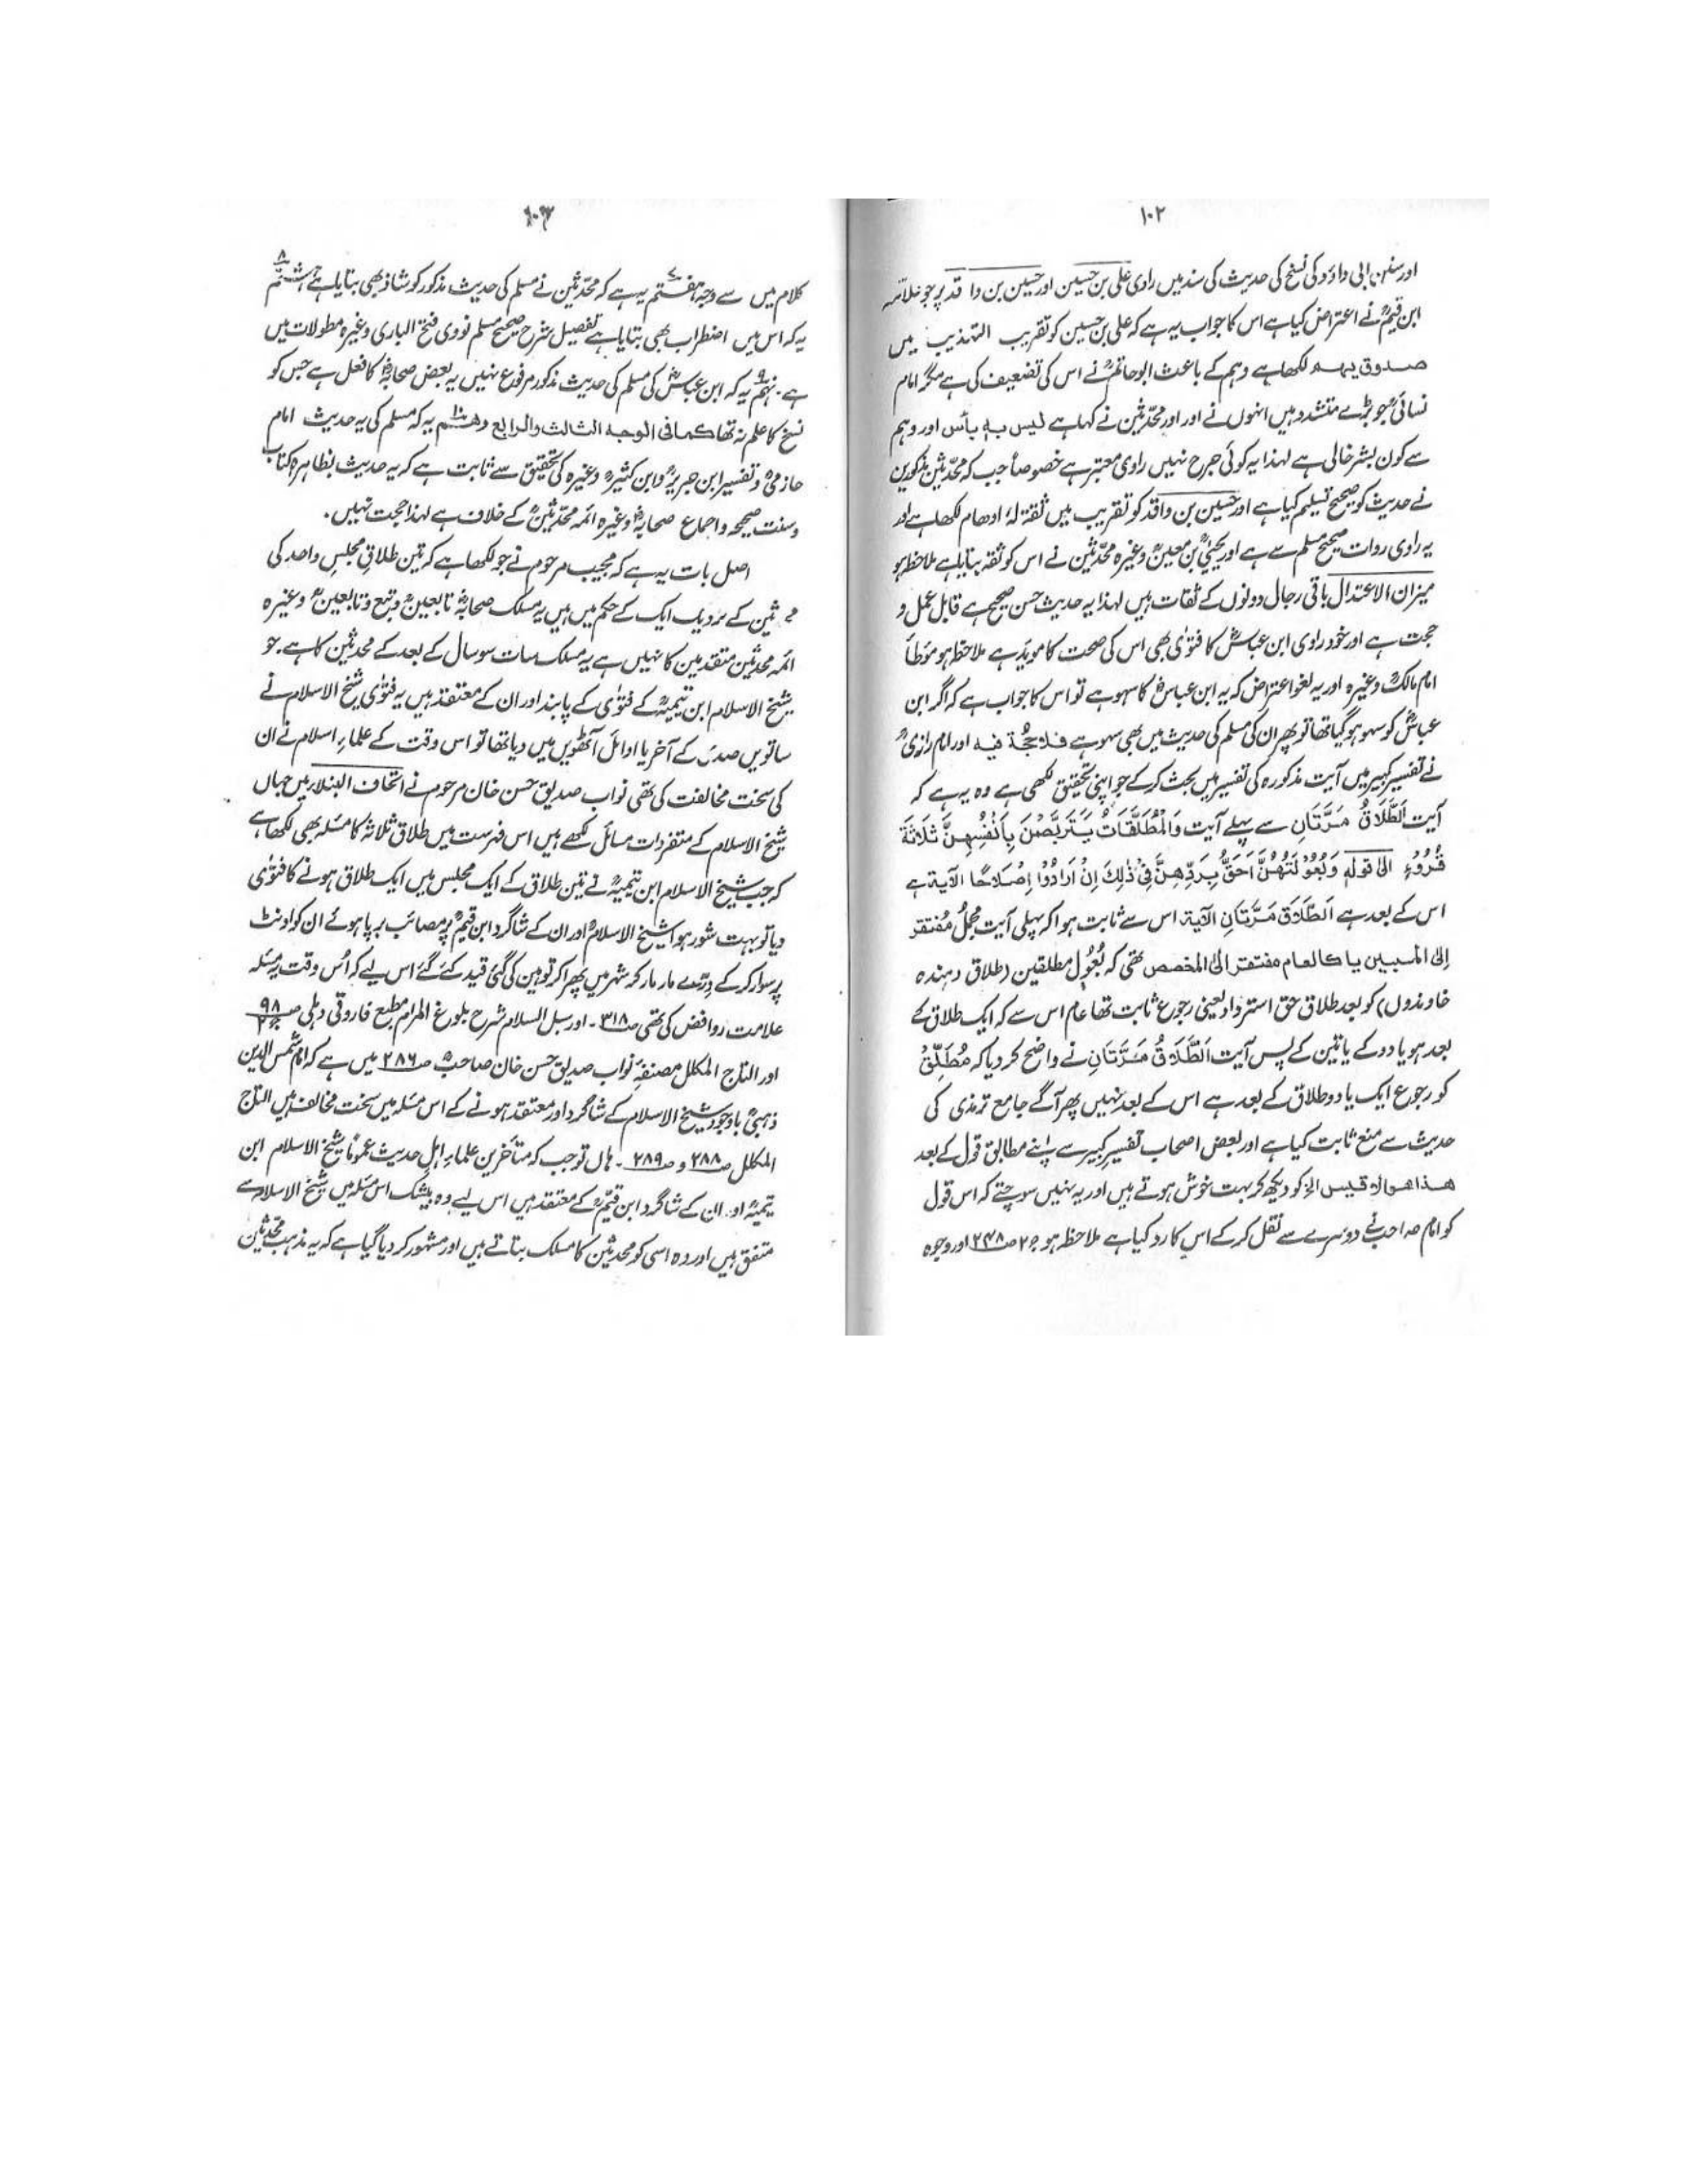 ۱۰۲
اور سنن ابی داؤد کی نسخ کی حدیث کی سند میں راوی علی بن حسین اور حسین بن واقد پر جو علامہ
ابن قیمؒ نے اعتراض کیا ہے اس کا جواب یہ ہے کہ علی بن حسین کو تقریب التہذیب میں
صدوق یہم لکھا ہے وہم کے باعث ابوحاتمؒ نے اس کی تضعیف کی ہے مگر امام
نسائیؒ جو بڑے متشدد ہیں انہوں نے اور اور محدّثین نے کہا ہے لیس بہٖ بأس اور وہم
سے کون بشر خالی ہے لہذا یہ کوئی جرح نہیں راوی معتبر ہے خصوصاً جب کہ محدّثین مذکورین
نے حدیث کو صحیح تسلیم کیا ہے اور حسین بن واقد کو تقریب میں ثقة لہٗ اوھام لکھا ہے اور
یہ راوی روات صحیح مسلم سے ہے اور یحییٰؒ بن معینؒ وغیرہ محدّثین نے اس کو ثقہ بتایا ہے ملاحظہ ہو
میزان الاعتدال باقی رجال دونوں کے ثقات ہیں لہذا یہ حدیث حسن صحیح ہے قابل عمل و
حجت ہے اور خود راوی ابن عباسؓ کا فتوٰی بھی اس کی صحت کا موید ہے ملاحظہ ہو مؤطا
امام مالکؒ وغیرہ اور یہ لغو اعتراض کہ یہ ابن عباسؓ کا سہو ہے تو اس کا جواب ہے کہ اگر ابن
عباسؓ کو سہو ہو گیا تھا تو پھر ان کی مسلم کی حدیث میں بھی سہو ہے فلا حجة فیہ اور امام رازیؒ
نے تفسیر کبیر میں آیت مذکورہ کی تفسیر میں بحث کر کے جو اپنی تحقیق لکھی ہے وہ یہ ہے کہ
آیت اَلطَّلَاقُ مَرَّتَانِ سے پہلے آیت وَالْمُطَلَّقَاتُ یَتَرَبَّصْنَ بِاَنْفُسِهِنَّ ثَلَاثَةَ
قُرُوْءٍ الیٰ قولہٖ وَبُعُوْلَتُهُنَّ اَحَقُّ بِرَدِّهِنَّ فِیْ ذٰلِكَ اِنْ اَرَادُوْا اِصْلَاحًا الآیة ہے
اس کے بعد ہے اَلطَّلَاقُ مَرَّتَانِ الآیة اس سے ثابت ہوا کہ پہلی آیت مجمل مُفتقر
اِلی المبین یا کالعام مفتقر الی المخصص تھی کہ بُعُوْل مطلقین (طلاق دہندہ
خاوندوں) کو بعد طلاق حق استرداد یعنی رجوع ثابت تھا عام اس سے کہ ایک طلاق کے
بعد ہو یا دو کے یا تین کے پس آیت اَلطَّلَاقُ مَرَّتَانِ نے واضح کر دیا کہ مُطَلِّقْ
کو رجوع ایک یا دو طلاق کے بعد ہے اس کے بعد نہیں پھر آگے جامع ترمذی کی
حدیث سے منع ثابت کیا ہے اور بعض اصحاب تفسیر کبیر سے اپنے مطابق قول کے بعد
ھذا ھو الاقیس الخ کو دیکھ کر بہت خوش ہوتے ہیں اور یہ نہیں سوچتے کہ اس قول
کو امام صاحب نے دوسرے سے نقل کر کے اس کا رد کیا ہے ملاحظہ ہو ج۲ ص۲۴۸ اور وجوہ
۱۰۳
کلام میں سے وجہ ہفتم یہ ہے کہ محدّثین نے مسلم کی حدیث مذکور کو شاذ بھی بتایا ہے ہشتم
یہ کہ اس میں اضطراب بھی بتایا ہے تفصیل شرح صحیح مسلم نووی فتح الباری وغیرہ مطولات میں
ہے۔ نہم یہ کہ ابن عباسؓ کی مسلم کی حدیث مذکور مرفوع نہیں یہ بعض صحابہؓ کا فعل ہے جس کو
نسخ کا علم نہ تھا کما فی الوجہ الثالث والرابع دہم یہ کہ مسلم کی یہ حدیث امام
حازمیؒ و تفسیر ابن جریرؒ و ابن کثیرؒ وغیرہ کی تحقیق سے ثابت ہے کہ یہ حدیث بظاہرہ کتاب
و سنت صحیحہ و اجماع صحابہؓ وغیرہ ائمہ محدّثینؒ کے خلاف ہے لہذا حجت نہیں۔
اصل بات یہ ہے کہ مجیب مرحوم نے جو لکھا ہے کہ تین طلاق مجلس واحد کی
ثین کے نزدیک ایک کے حکم میں ہیں یہ مسلک صحابہؓ تابعینؒ و تبع و تابعینؒ وغیرہ
ائمہ محدثین متقدمین کا نہیں ہے یہ مسلک سات سو سال کے بعد کے محدثین کا ہے۔ جو
شیخ الاسلام ابن تیمیہؒ کے فتوٰی کے پابند اور ان کے معتقد ہیں یہ فتوٰی شیخ الاسلام نے
ساتویں صدی کے آخر یا اوائل آٹھویں میں دیا تھا تو اس وقت کے علماء اسلام نے ان
کی سخت مخالفت کی تھی نواب صدیق حسن خان مرحوم نے اتحاف النبلاء میں جہاں
شیخ الاسلام کے متفردات مسائل لکھے ہیں اس فہرست میں طلاق ثلاثہ کا مسئلہ بھی لکھا ہے
کہ جب شیخ الاسلام ابن تیمیہؒ نے تین طلاق کے ایک مجلس میں ایک طلاق ہونے کا فتوٰی
دیا تو بہت شور ہوا شیخ الاسلامؒ اور ان کے شاگرد ابن قیمؒ پر مصائب برپا ہوئے ان کو اونٹ
پر سوار کر کے درّے مار مار کر شہر میں پھرا کر توہین کی گئی قید کئے گئے اس لیے کہ اُس وقت یہ مسئلہ
علامت روافض کی تھی ص۳۱۸۔ اور سبل السلام شرح بلوغ المرام مطبع فاروقی دہلی ص۹۸ ج۲
اور التاج المکلل مصنفہٖ نواب صدیق حسن خان صاحبؒ ص۲۸۶ میں ہے کہ امام شمس الدین
ذہبیؒ باوجود شیخ الاسلام کے شاگرد اور معتقد ہونے کے اس مسئلہ میں سخت مخالف ہیں التاج
المکلل ص۲۸۸ و ص۲۸۹۔ ہاں تو جب کہ متأخرین علماء اہل حدیث عموماً شیخ الاسلام ابن
تیمیہؒ اور ان کے شاگرد ابن قیمؒ کے معتقد ہیں اس لیے وہ بیشک اس مسئلہ میں شیخ الاسلام سے
متفق ہیں اور وہ اسی کو محدثین کا مسلک بتاتے ہیں اور مشہور کر دیا گیا ہے کہ یہ مذہب محدّثین